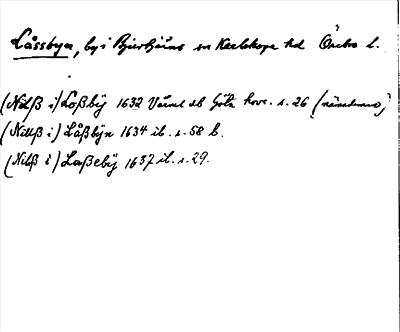 Låssbyn, by i Bjurtjärns sn Karlskoga hd Örebro l.
(Nilß i) Loßbÿ 1632 Värml db Göta hovr. s. 26
(Nilß i) Låßbÿn 1634 ib. s. 58 b.
(Nilß i) Laßebÿ 1637 ib. s. 29.